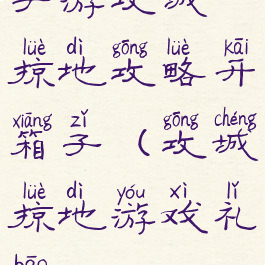 lüè dì gōng lüè kāi
掠地攻略开
xiāng zǐ gōng chéng
箱子（攻城
lüè dì yóu xì lǐ
掠地游戏礼